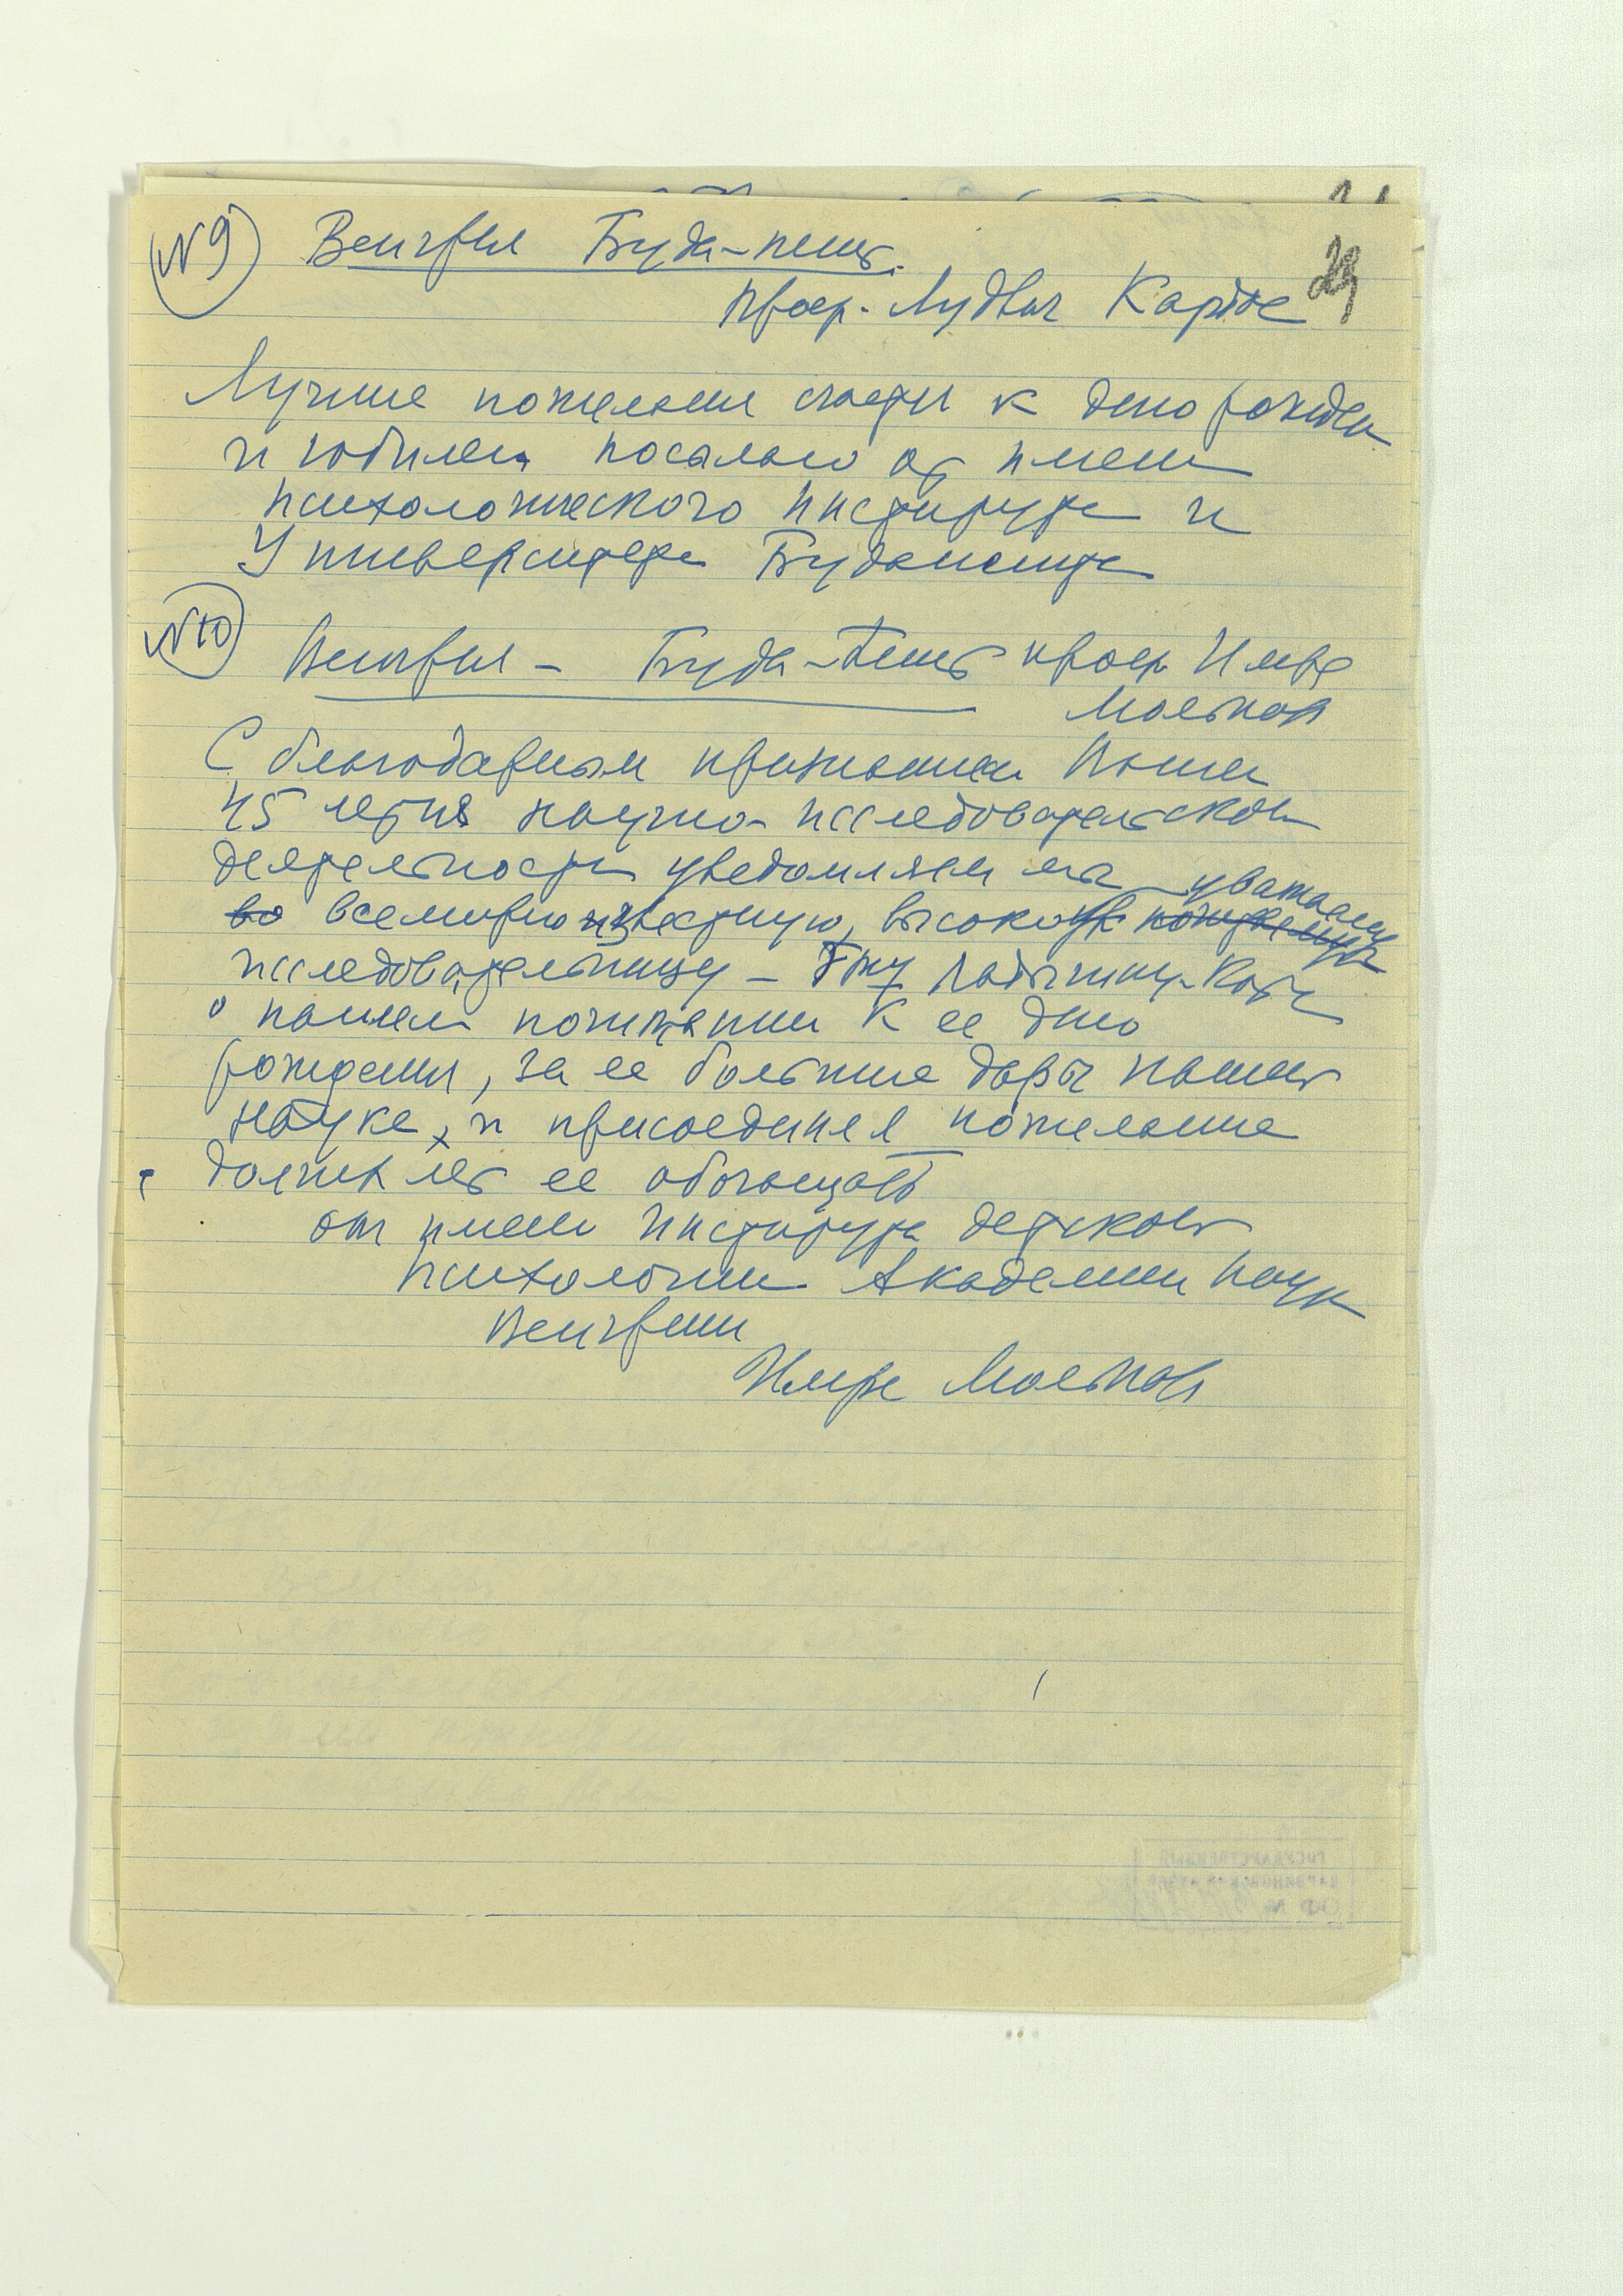 №9 Венгрия Буда-пешт.
23
Проф. Лудвиг Кардос
Лучшие пожелания счастья к дню рожден
и юбилея посылаю от имени
психологического института и
Университета Будапешта
№10
Венгрия – Буда-Пешт проф Имре
Мольнар
С благодарным признанием Вашей
45 летия научно-исследовательской
деятельности уведомляем мы уважаемую
во всемирно известную, высоко
исследовательницу – Гжу Ладыгину-Котс
о нашем почитании к ее дню
рождения, за ее большие дары нашей
науке, и присоединяя пожелание
долгих лет ее обогащать
от имени Института детской
психологии Академии Наук
Венгрии
Имре Мольнар
ГОСУДАРСТВЕННЫЙ
ДАРВИНОВСКИЙ МУЗЕЙ
ОФ №